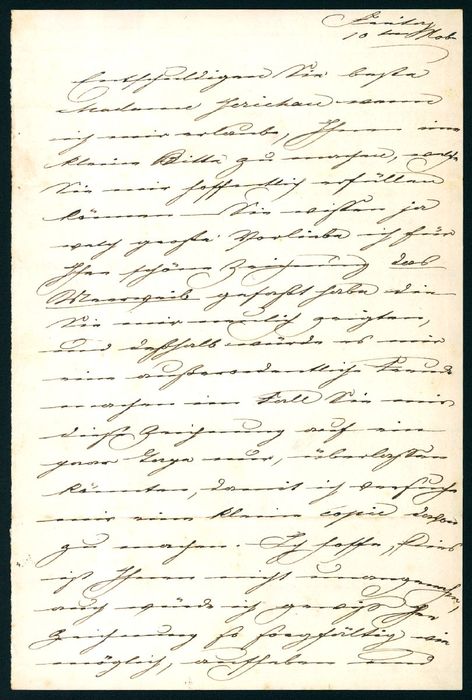 Freitag
10 ten Nob.
Entschuldigen Sie beste
Madame Jerichau wenn
ich mir erlaube, Ihnen eine
kleine Bitte zu machen, welche
Sie mir hoffentlich erfüllen
können. Sie wissen ja
welch große Vorliebe ich für
Ihre schöne Zeichnung das
Meerweib gefaßt habe die
Sie mir neulich zeigten,
und deßhalb würde es mir
eine außerordentliche Freude
machen im Fall Sie mir
diese Zeichnung auf ein
paar Tage nur, überlassen
könnten, damit ich versuche
mir eine kleine copie davon
zu machen. Ich hoffe, dies
ist Ihnen nicht unangenehm,
auch würde ich gewiß die
Zeichnung so sorgfältig wie
möglich, aufheben und